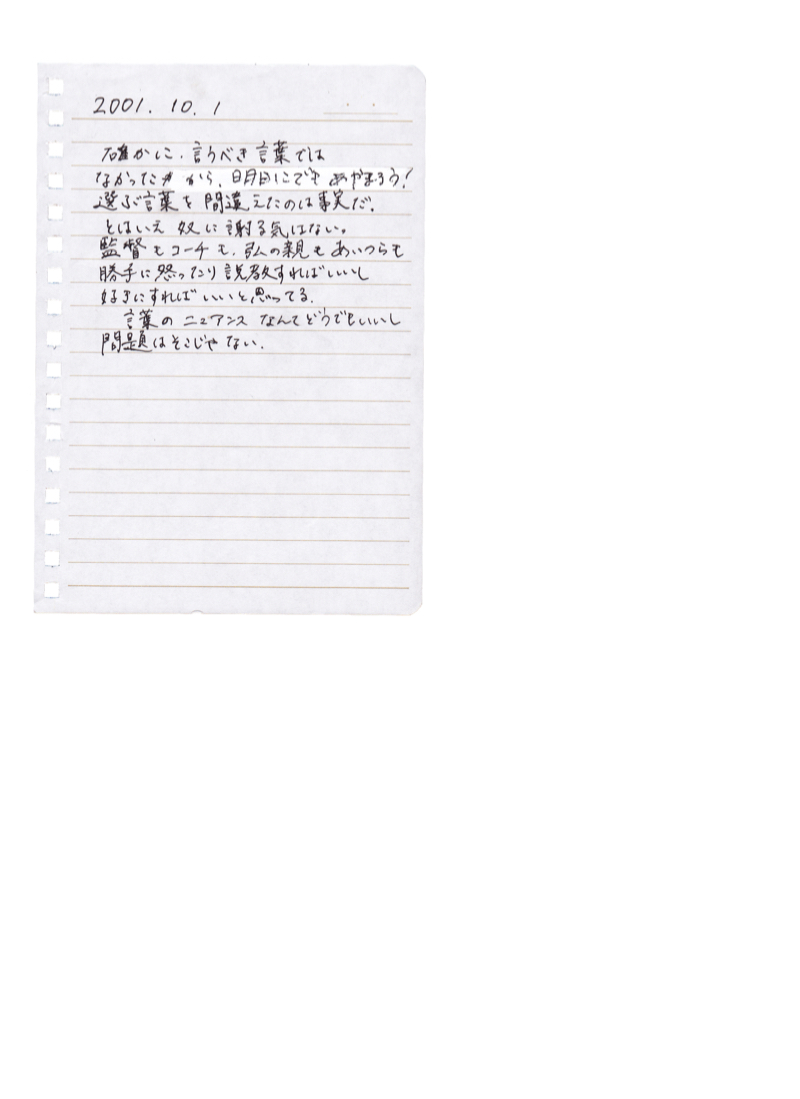 2001. 10. 1
確かに、言うべき言葉では
なかった から、明日にでも あやまろう!
選ぶ言葉を間違えたのは事実だ.
とはいえ 奴に謝る気はない。
監督もコーチも、弘の親も あいつらも
勝手に怒ったり説教すればいいし
好きにすればいいと思ってる.
言葉の ニュアンス なんてどうでもいいし
問題はそこじゃ ない.